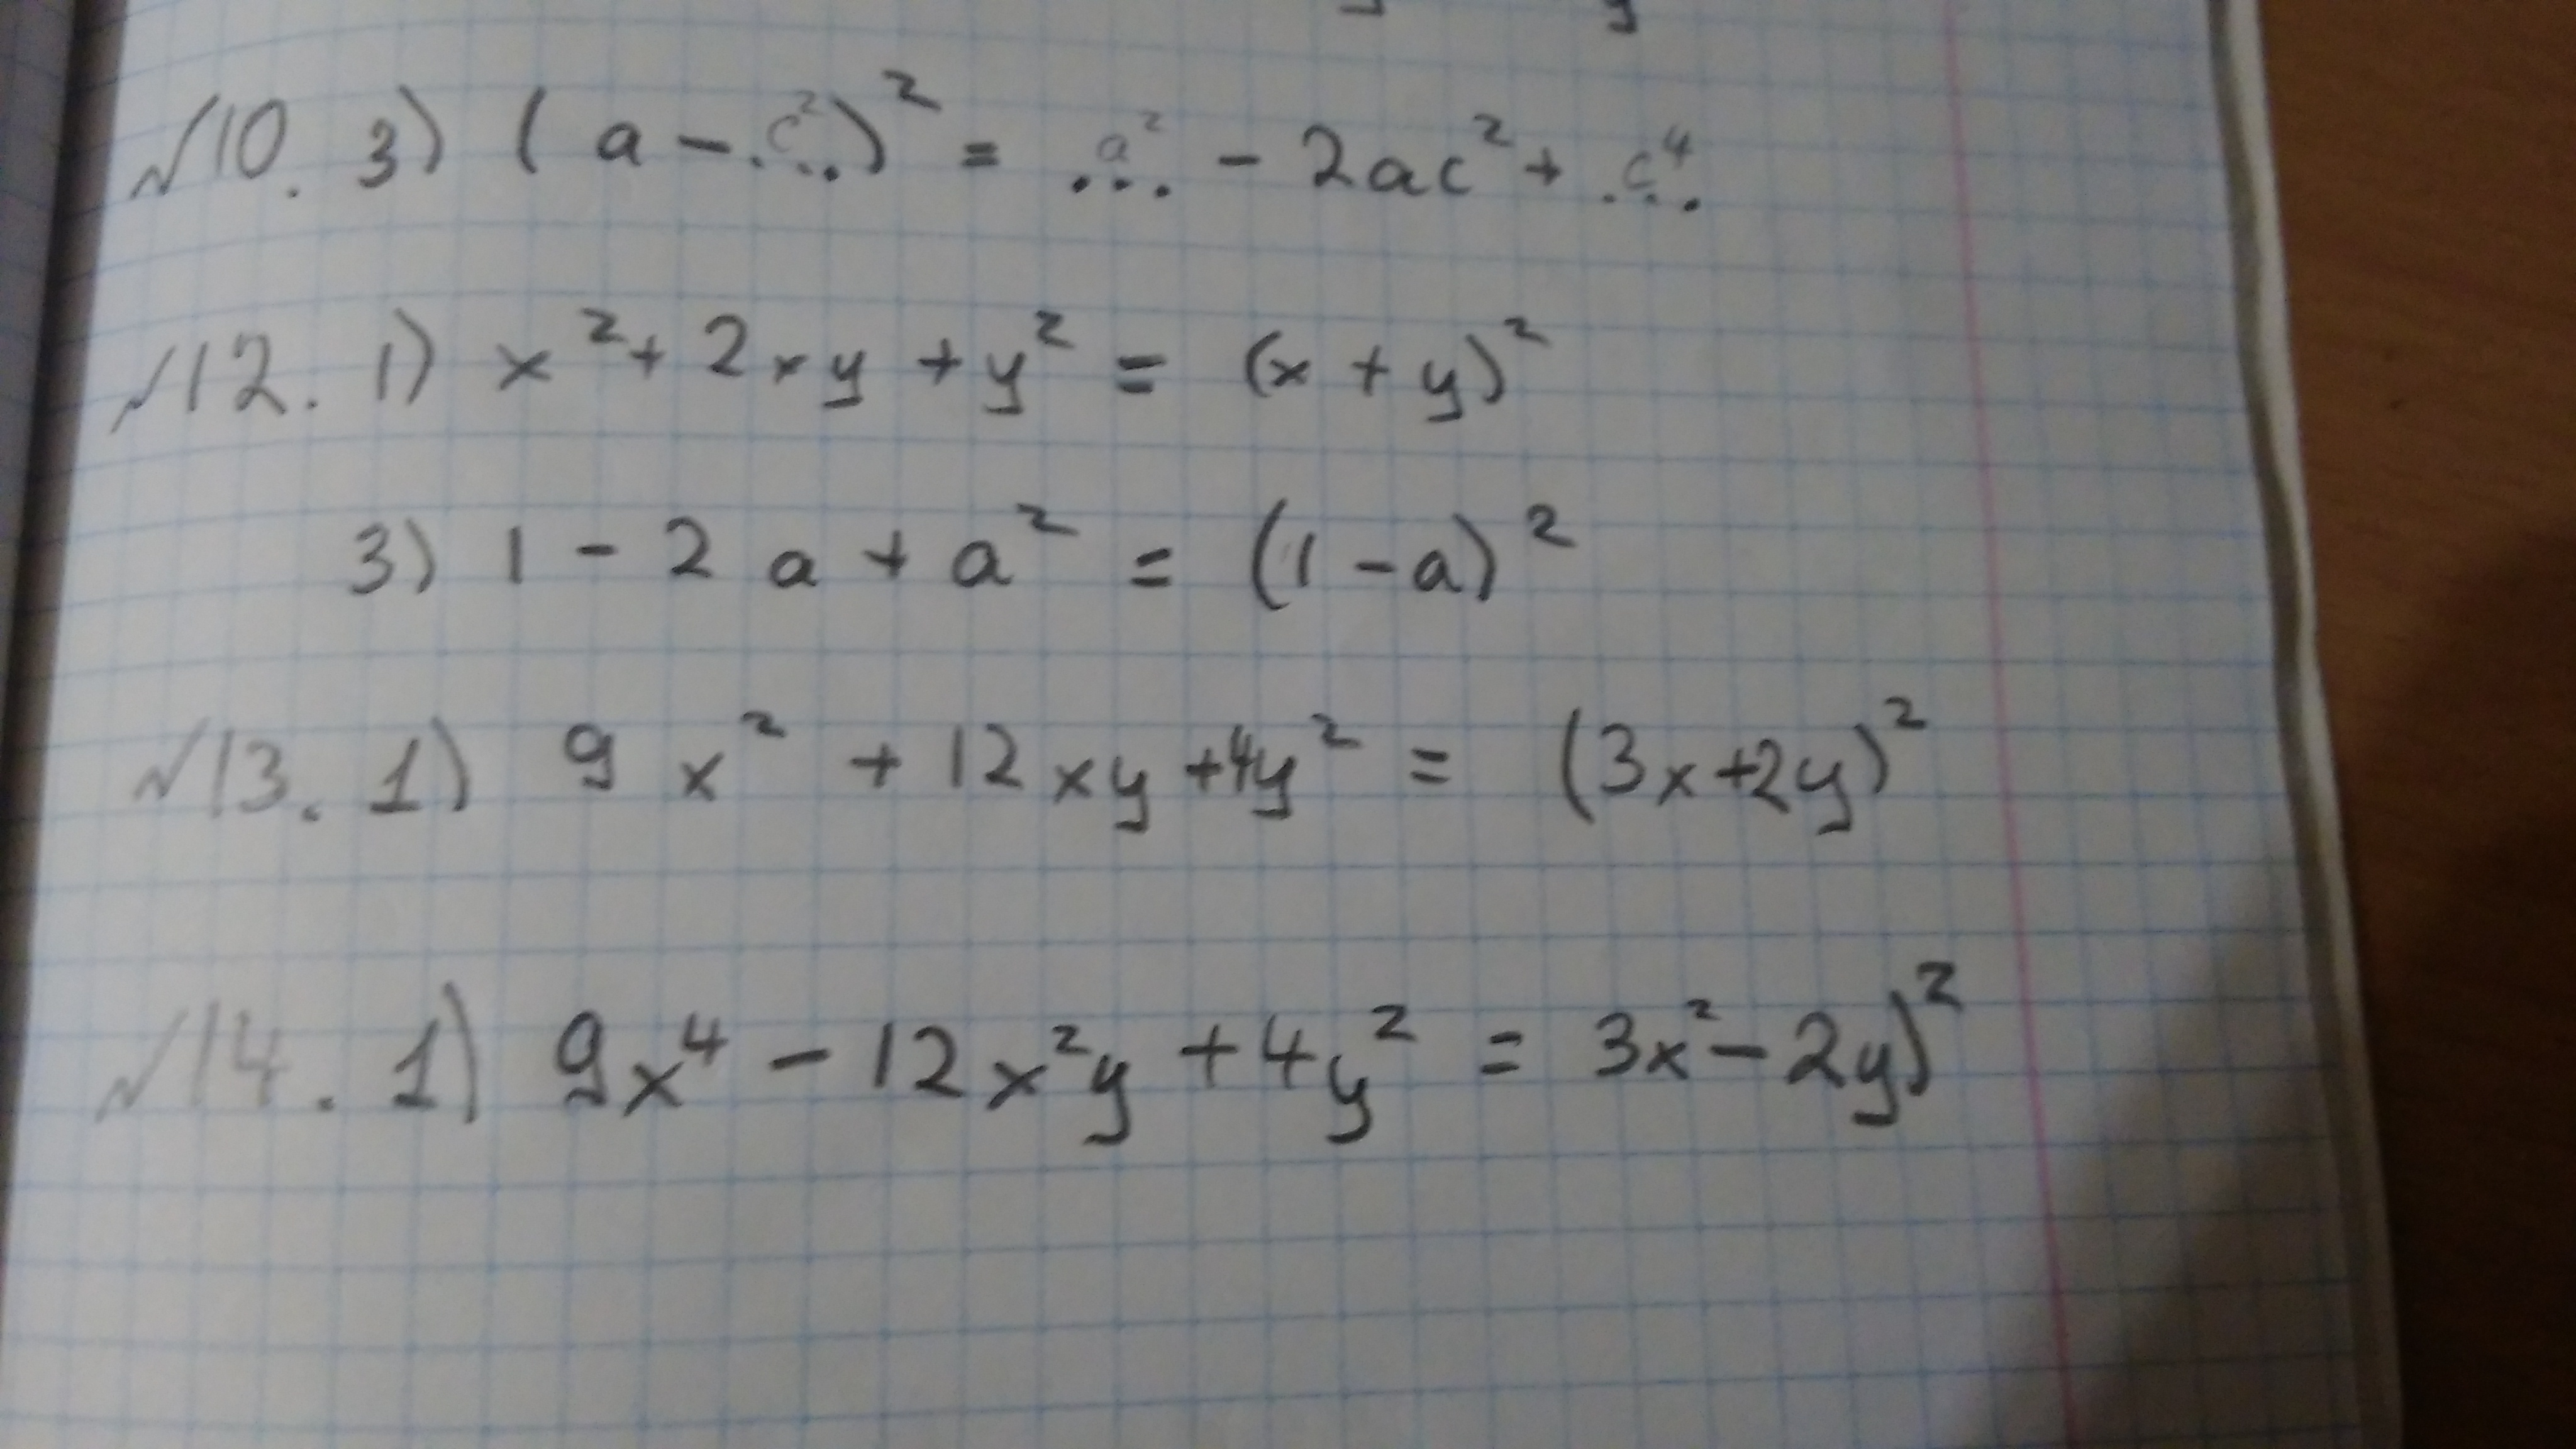 №10. 3) (a - .c².)² = .a². - 2ac² + .c⁴.
№12. 1) x² + 2xy + y² = (x + y)²
3) 1 - 2a + a² = (1 - a)²
№13. 1) 9x² + 12xy + 4y² = (3x + 2y)²
№14. 1) 9x⁴ - 12x²y + 4y² = 3x² - 2y)²